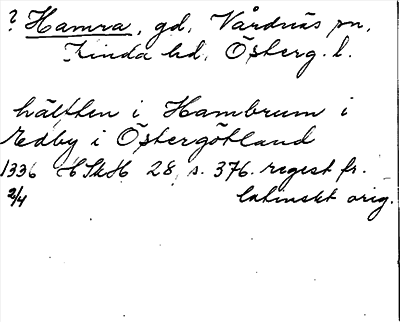 ? Hamra, gd, Vårdnäs sn,
Kinda hd, Österg. l.
hälften i Hambrum i
Redby i Östergötland
1336 HSkH 28, s. 376. regest fr.
2/4 latinskt orig.